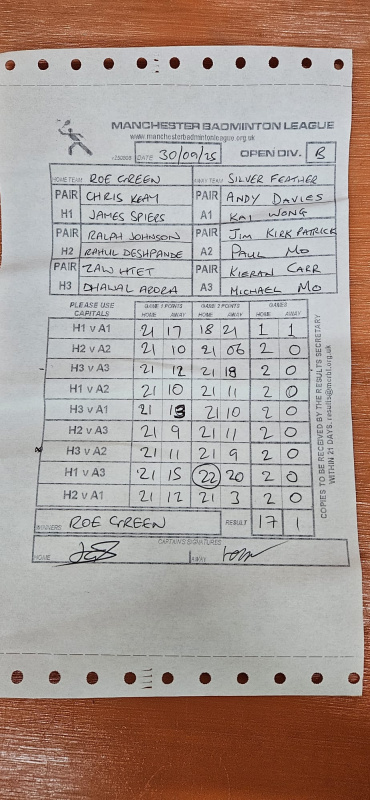 MANCHESTER BADMINTON LEAGUE
www.manchesterbadmintonleague.org.uk
DATE 30/09/25 OPEN DIV. B
HOME TEAM ROE GREEN AWAY TEAM SILVER FEATHER
PAIR CHRIS KEAY PAIR ANDY DAVIES
H1 JAMES SPIERS A1 KAI WONG
PAIR RALPH JOHNSON PAIR JIM KIRKPATRICK
H2 RAHUL DESHPANDE A2 PAUL MO
PAIR ZAW HTET PAIR KIERAN CARR
H3 DHAWAL ARORA A3 MICHAEL MO
PLEASE USE CAPITALS GAME 1 POINTS GAME 2 POINTS GAMES
HOME AWAY HOME AWAY HOME AWAY
H1 v A1 21 17 18 21 1 1
H2 v A2 21 10 21 06 2 0
H3 v A3 21 12 21 18 2 0
H1 v A2 21 10 21 11 2 0
H3 v A1 21 13 21 10 2 0
H2 v A3 21 9 21 11 2 0
H3 v A2 21 11 21 9 2 0
H1 v A3 21 15 22 20 2 0
H2 v A1 21 12 21 3 2 0
WINNERS ROE GREEN RESULT 17 1
CAPTAIN'S SIGNATURES
HOME AWAY
COPIES TO BE RECEIVED BY THE RESULTS SECRETARY
WITHIN 21 DAYS. results@mcrbl.org.uk